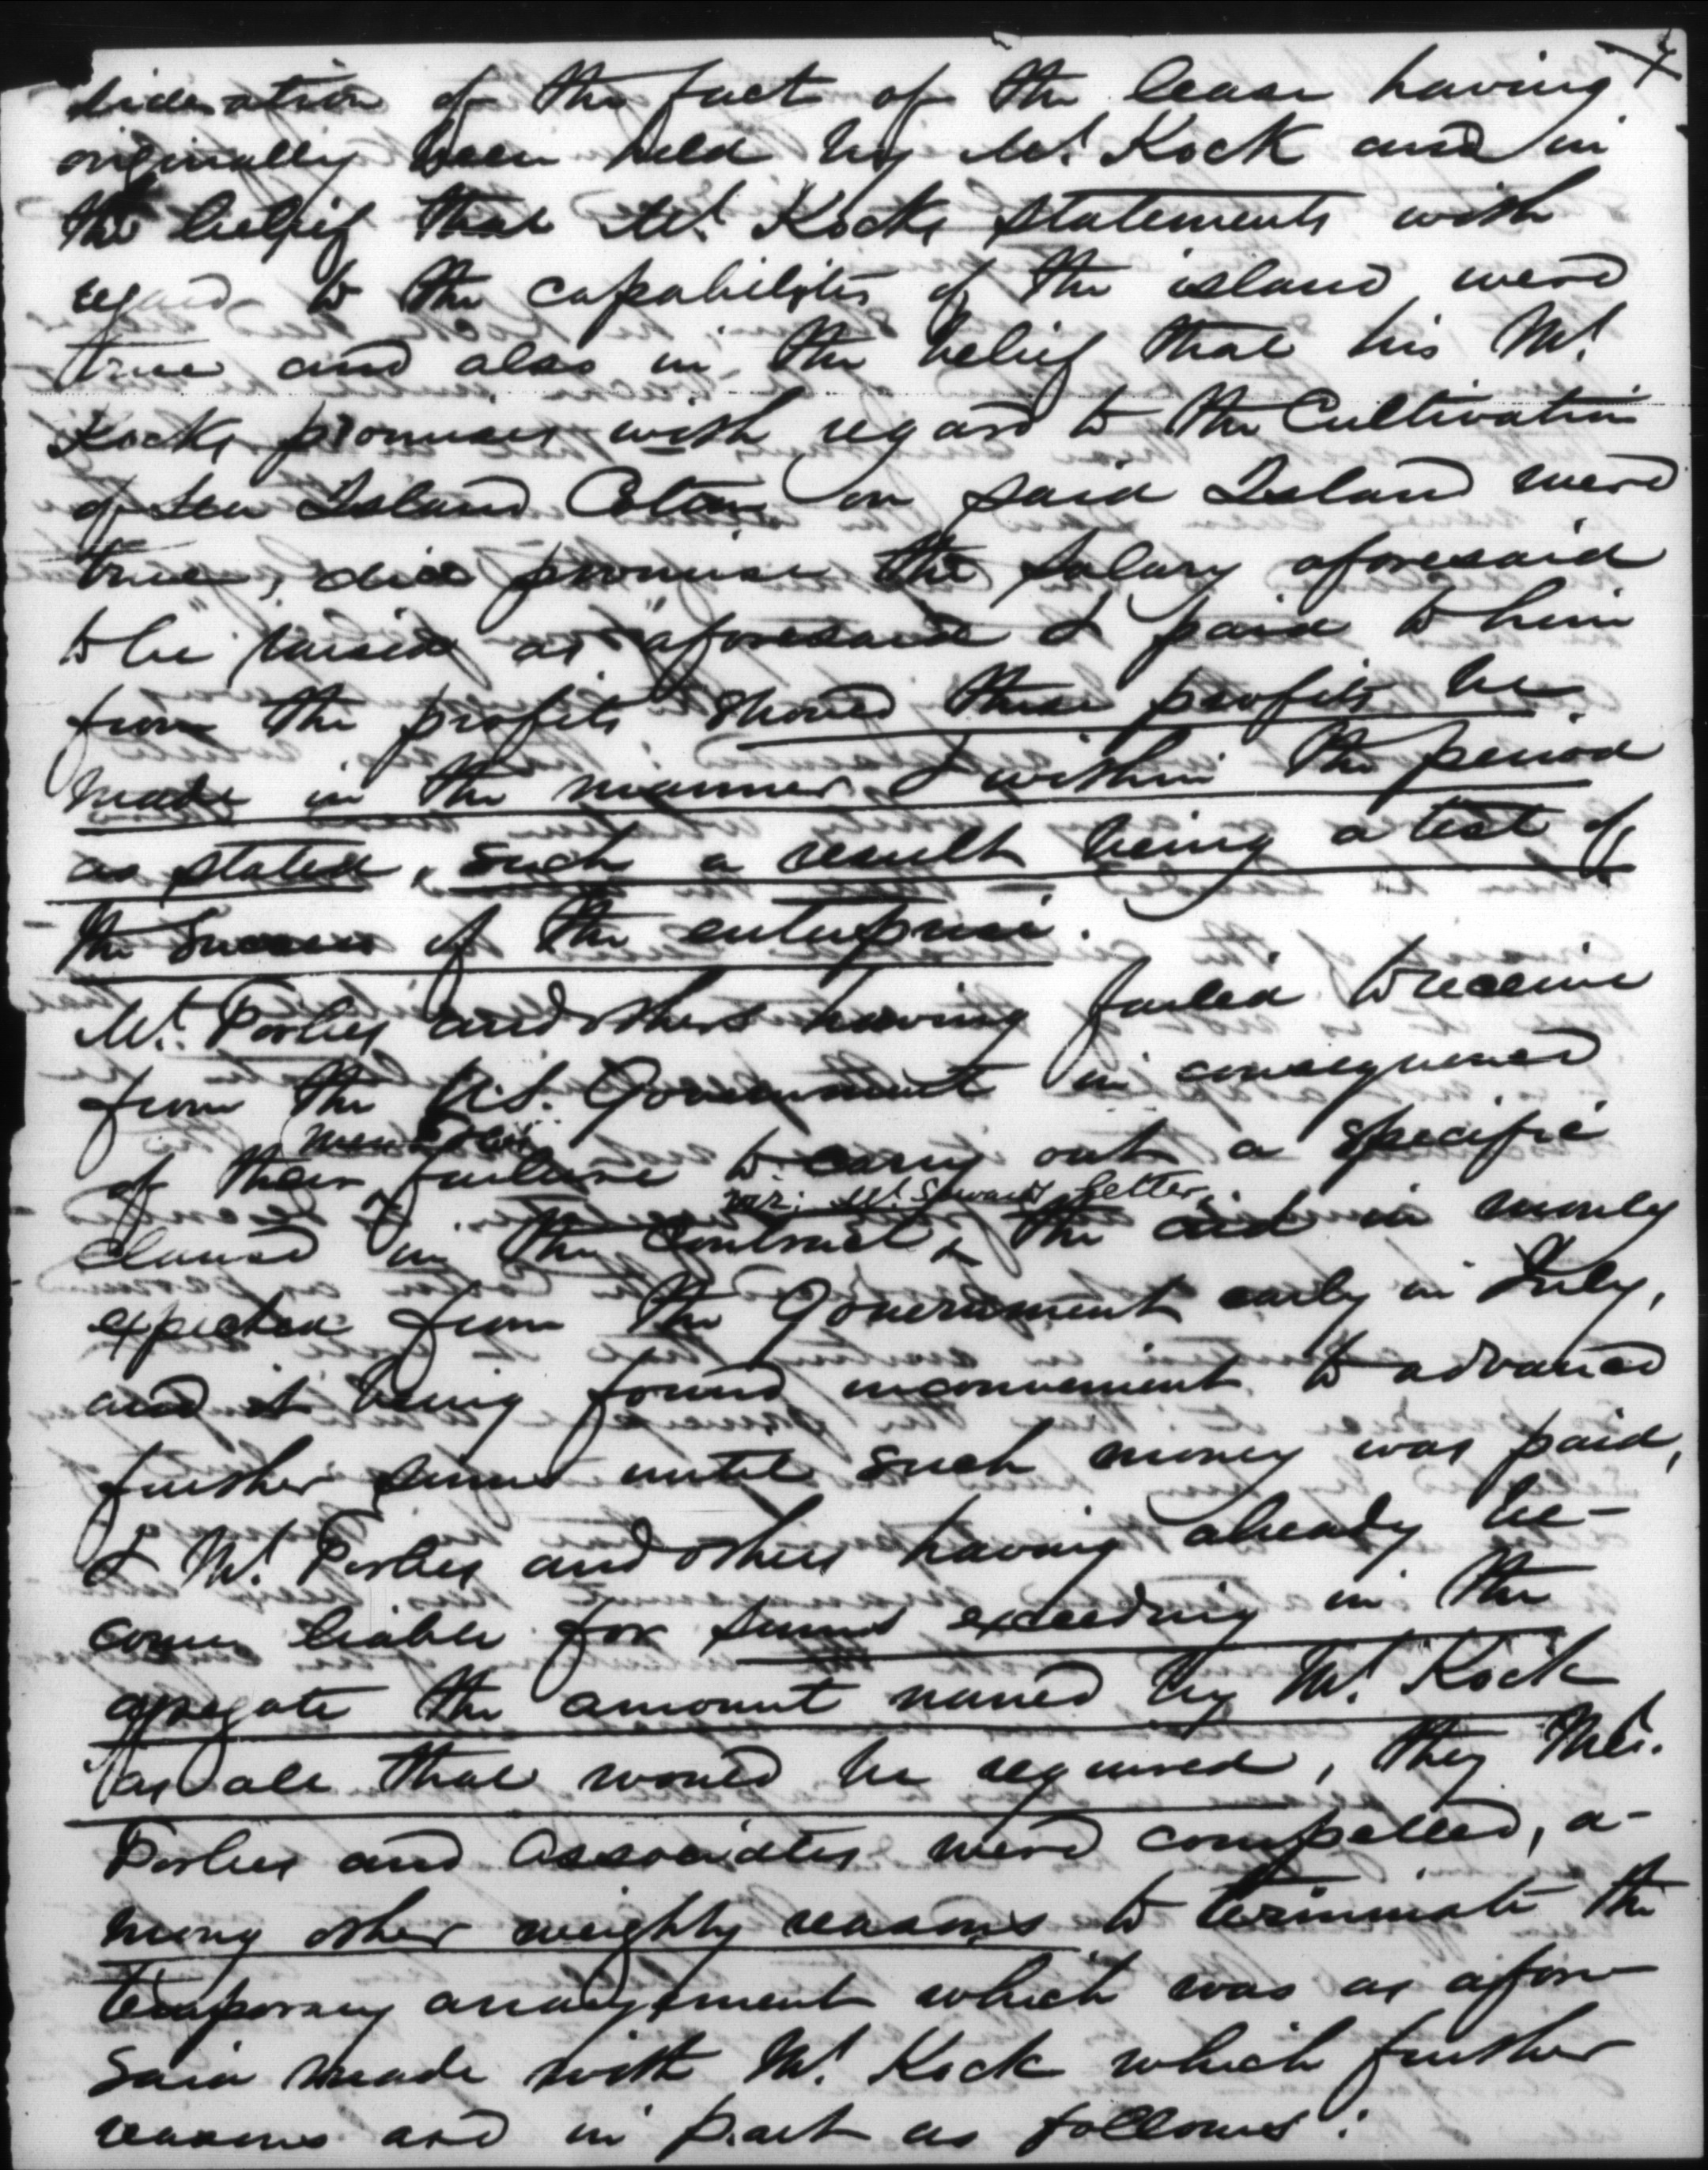 4
sideration of the fact of the lease having
originally been held by Mr. Kock and in
the belief that Mr. Kocks statements with
regard to the capabilities of the island were
true and also in the belief that his Mr.
Kocks promises with regard to the Cultivation
of Sea Island Cotton on said Island were
true, did promise the salary aforesaid
to be raised as aforesaid & paid to him
from the profits should these profits be
made in the manner & within the period
as stated, such a result being a test of
the success of the enterprise.
Mr. Forbes and others having failed to receive
from the U.S. Government in consequence
of their failure to carry out a specific
viz: Mr. Sewards letter,
clause in the Contract, the aid in money
expected from the Government early in July,
and it being found inconvenient to advance
further sums until such money was paid,
& Mr. Forbes and others having already be-
come liable for sums exceeding in the
agregate the amount named by Mr. Kock
as all that would be required, they Mr.
Forbes and associates were compelled, a-
mong other weighty reasons to terminate the
temporary arrangement which was as afore
said made with Mr. Kock which further
reasons are in part as follows: